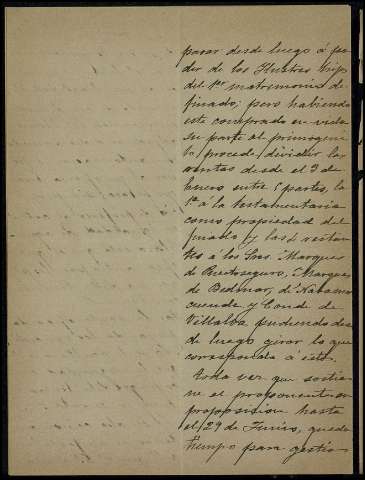 pasar desde luego á po-
der de los Ilustres hijos
del 1er matrimonio del
finado; pero habiendo
este comprado en vida
su parte al primogeni-
to, procede dividir las
rentas desde el 3 de
Enero entre 5 partes, la
1ª á la testamentaria
como propiedad del
finado y las 4 restan-
tes á los Sres. Marques
de Puertoseguro, Marques
de Bedmar, de Navamor-
cuende y Conde de
Villalva pudiendo des-
de luego girar lo que
corresponda á estos.
Toda vez que sostie-
ne el proponente su
proposición hasta
el 29 de Junio, queda
tiempo para gestio-